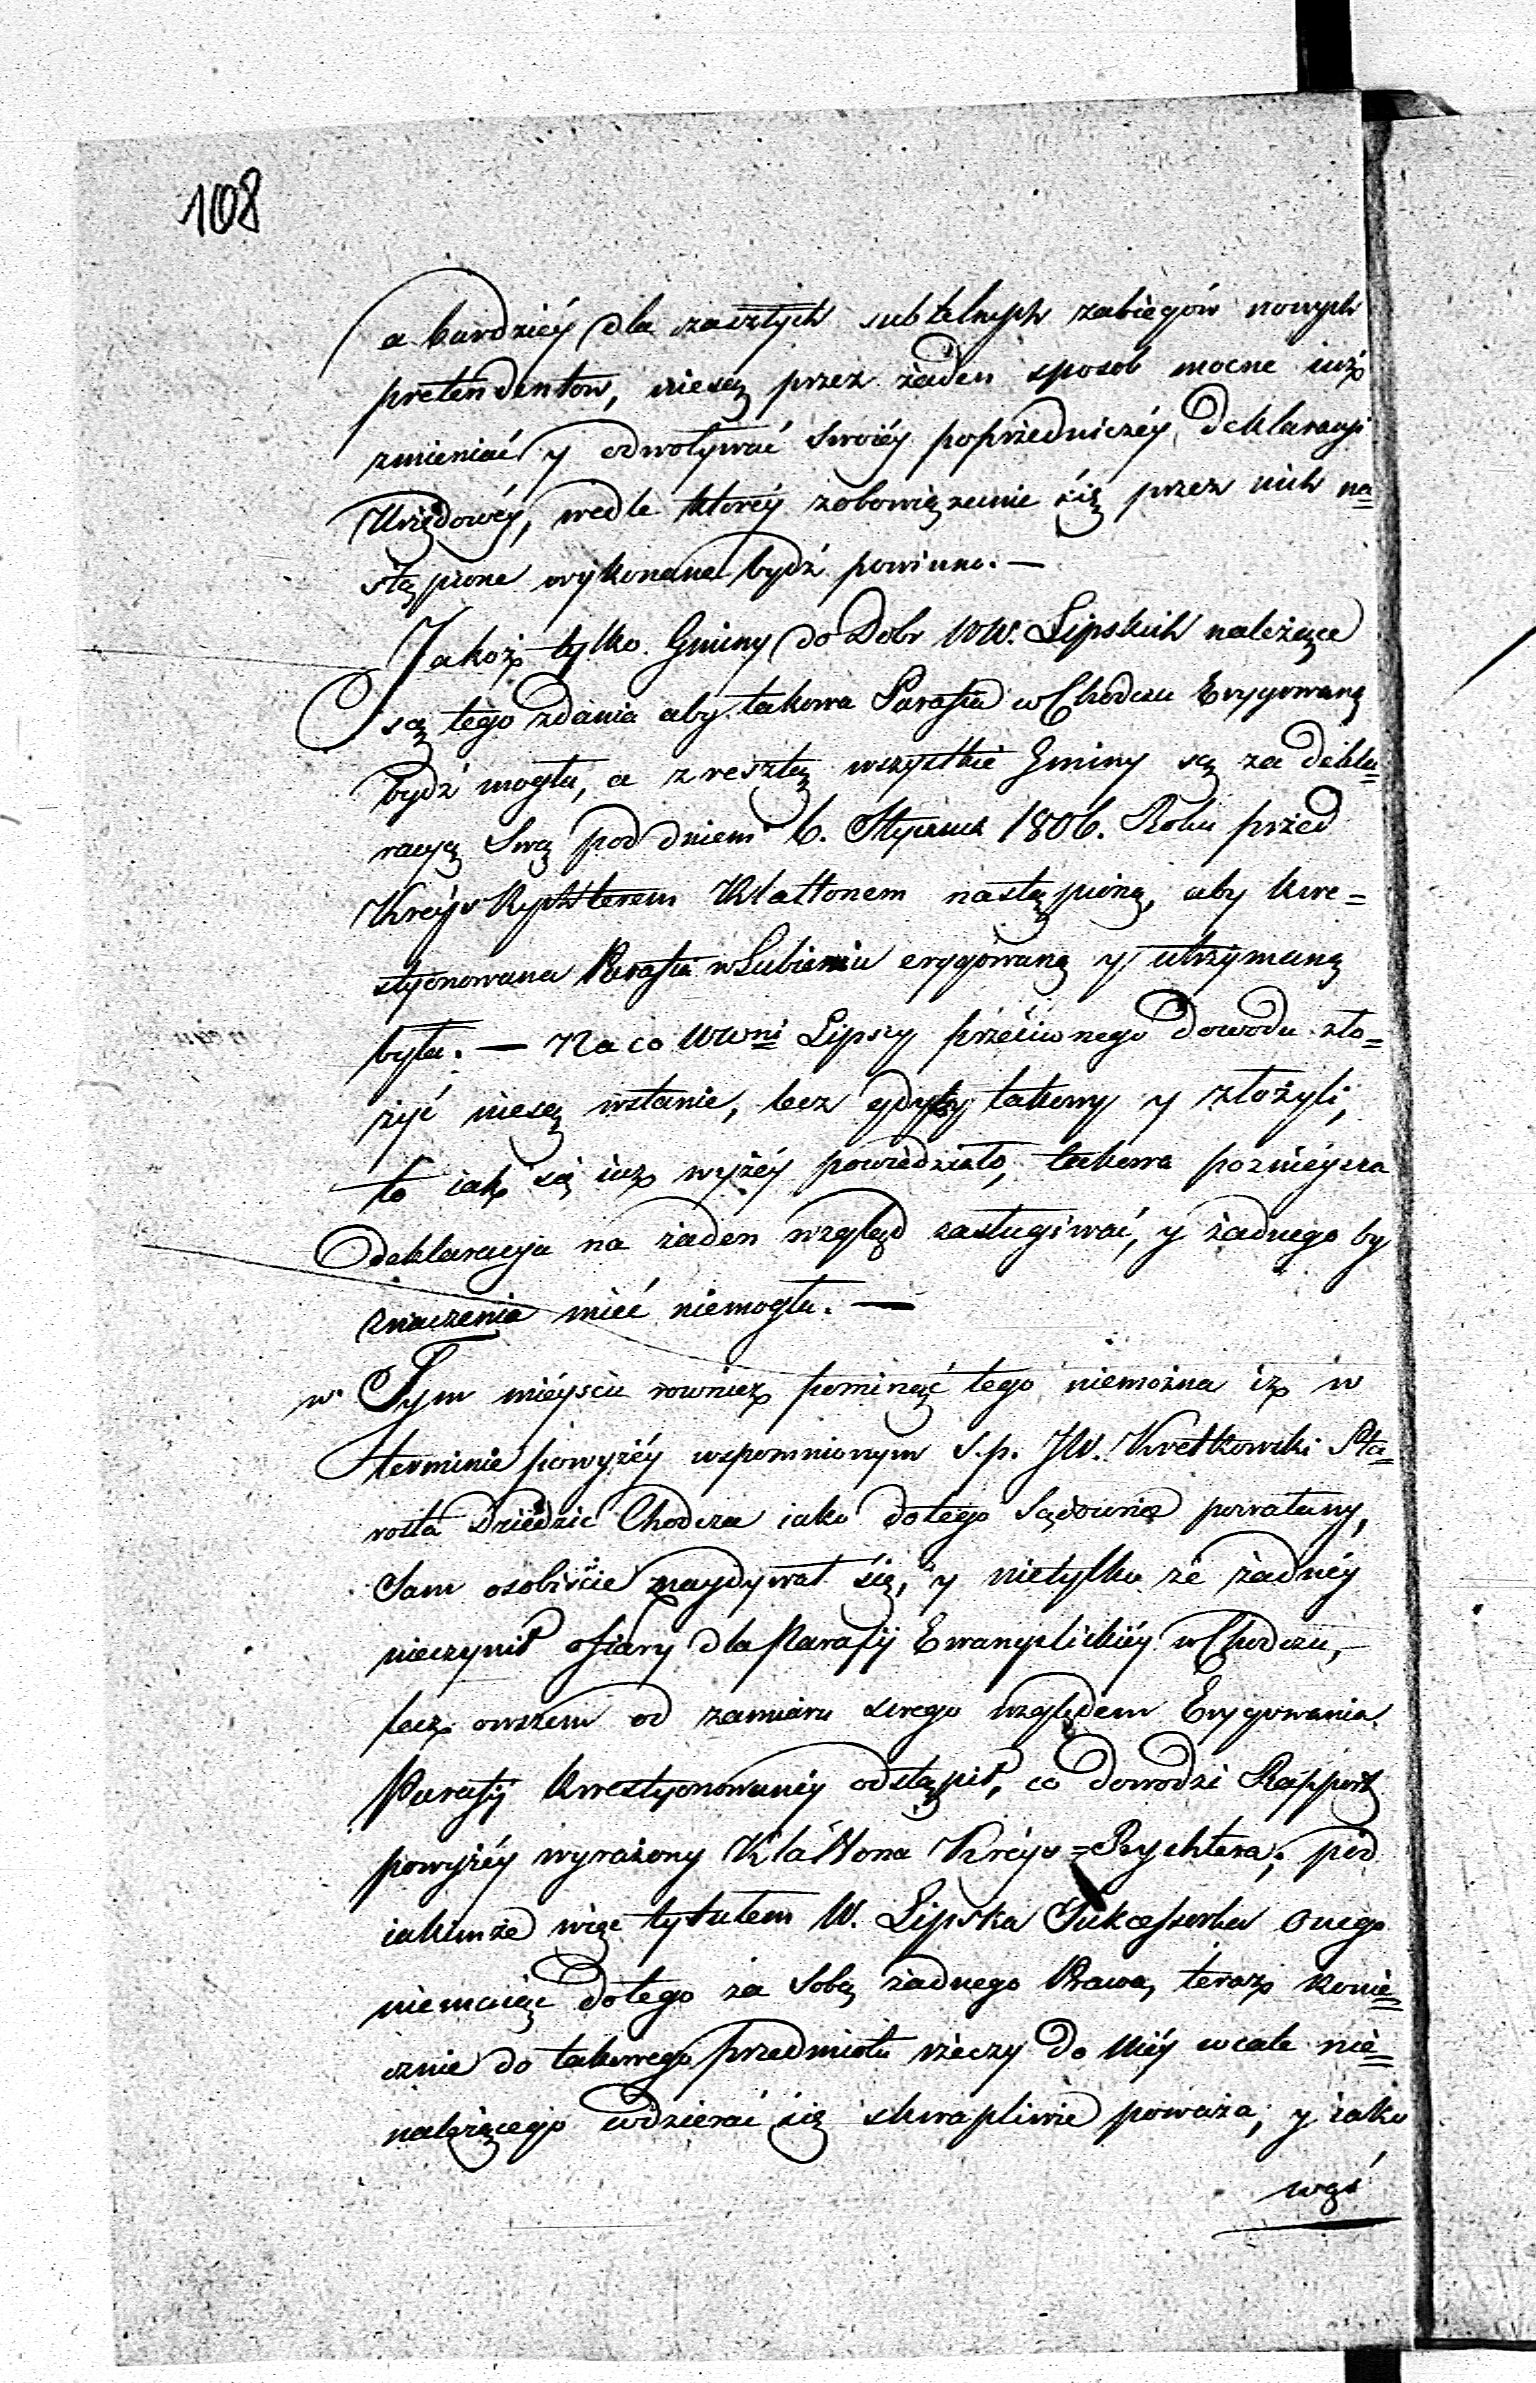 108
a bardziéy dla zaszłych subtelnych zabiegów nowych
pretendentow, niesą przez żaden sposob mocne iuż
zmieniać y odwoływać swoiéy poprzedniczéy deklaracyi
Urzędowéy, wedle któréy zobowiązanie się przez nich na=
stąpione wykonane bydź powinno. —
Jakoż tylko Gminy do Dobr WW. Lipskich należące
są tego zdania aby takowa Parafia w Chodczu Erygowaną
bydź mogła, a z resztą wszystkie Gminy są za dekla=
racyą Swą pod dniem 6. Stycznia 1806. Roku przed
Kreys Rychterem Klattonem nastąpioną, aby kwe=
styonowana Parafia w Lubieniu erygowaną y utrzymaną
była. — Na co WWni Lipscy przeciwnego dowodu zło=
żyć niesą wstanie, lecz gdyby takowy y złożyli,
to iak się iuż wyżéy powiedziało, takowa poznieysza
deklaracyja na żaden wzgląd zasługiwać, y żadnego by
znaczenia mieć niemogła. —
w Tym miéyscu rownież pominąć tego niemożna iż w
terminie powyżéy wspomnionym ś.p. JW. Kretkowski Sta=
rosta Dziedzic Chodcza iako do tego Sądownie powołany,
Sam osobiście znaydywał się, y nietylko że żadnéy
nieczynił ofiary dla Parafij Ewangelickiéy w Chodczu,
lecz owszem od zamiaru swego względem Erygowania
Parafij kwestyonowanéy odstąpił, co dowodzi Rapport
powyżéy wyrażony Klattona Kreys=Rychtera; pod
iakimże więc tytułem W. Lipska Sukcessorka onego
niemaiąc do tego za Sobą żadnego Prawa, teraz konie=
cznie do takowego przedmiotu rzeczy do Niéy wcale nie=
należącego wdzierać się skwapliwie poważa, y iako